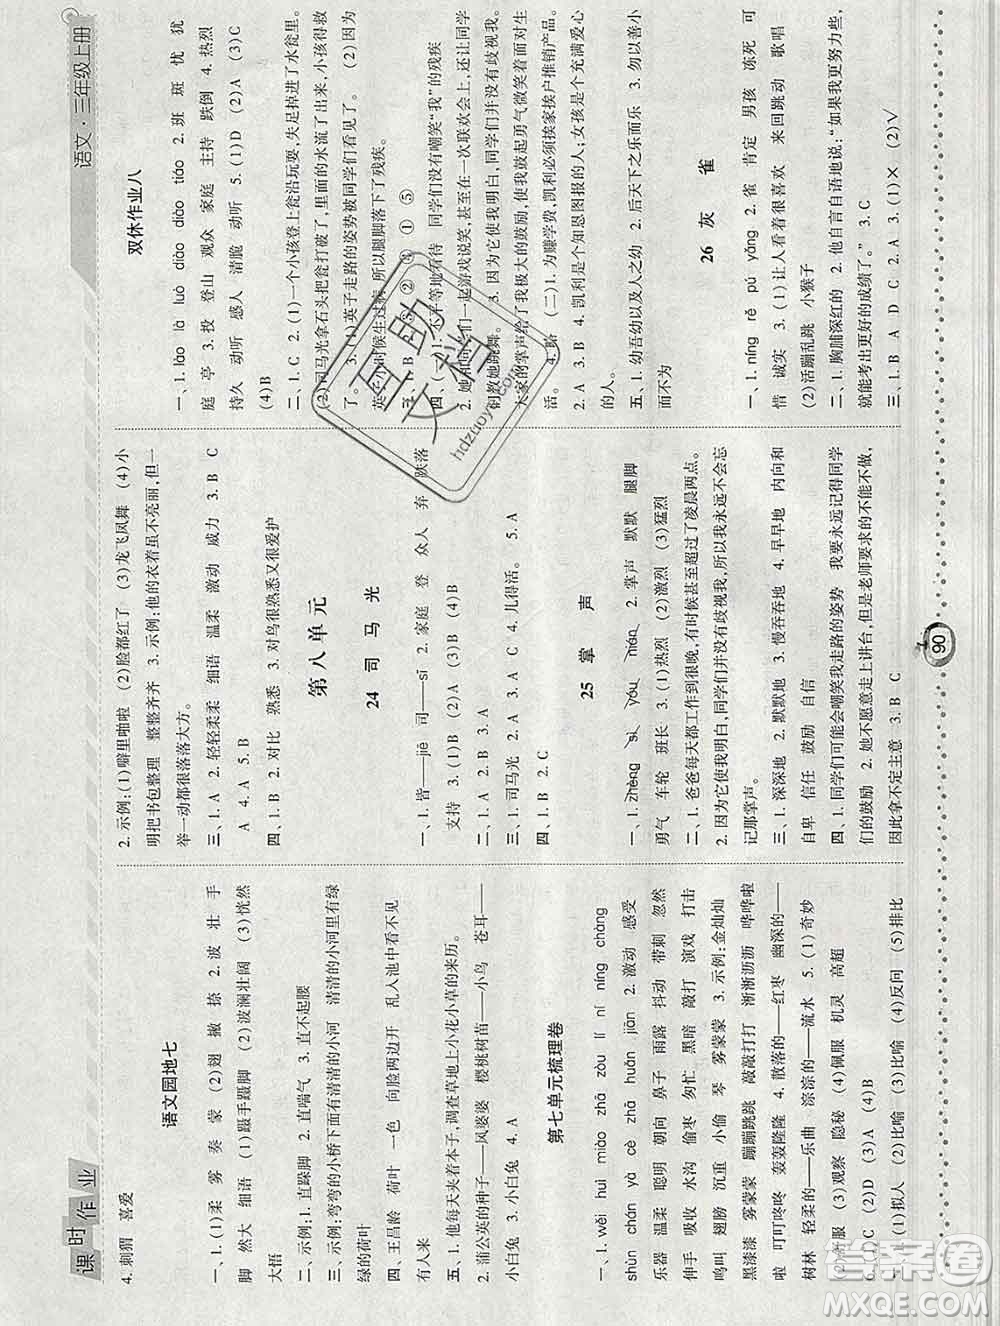 课时作业
语文·三年级上册
4. 刺猬 喜爱
语文园地七
一、1. (1)柔 雾 奏 蒙 (2)翅 撇 捺 2. 波 壮 手
脚 然大 细语 (1)蹑手蹑脚 (2)波澜壮阔 (3)恍然
大悟
二、示例:1. 直跺脚 2. 直喘气 3. 直不起腰
三、示例:弯弯的小桥下面有清清的小河 清清的小河里有绿
绿的荷叶
四、王昌龄 荷叶 一色 向脸两边开 乱入池中看不见
有人来
五、1. 他每天夹着本子,调查草地上小花小草的来历。
2. 蒲公英的种子——风婆婆 樱桃树苗——小鸟 苍耳——
小白兔 3. 小白兔 4. A
第七单元梳理卷
一、1. wěi huì miào zhā zòu lí ní níng chàng
shùn chán yà cè zhā huán jiān 2. 激动 感受
乐器 温柔 聪明 朝向 鼻子 雨露 抖动 带刺 忽然
伸手 吸收 水沟 偷枣 匆忙 黑暗 敲打 演戏 打击
鸣叫 翅膀 沉重 小偷 琴 雾蒙蒙 3. 示例:金灿灿
黑漆漆 雾蒙蒙 蹦蹦跳跳 敲敲打打 淅淅沥沥 哗哗啦
啦 叮叮咚咚 轰轰隆隆 4. 散落的——红枣 幽深的——
树林 轻柔的——乐曲 淙淙的——流水 5. (1)奇妙
(2)舒服 (3)观察 隐秘 (4)佩服 机灵 高超
6. (1)C (2)D (3)A (4)B
7. (1)拟人 (2)比喻 (3)比喻 (4)反问 (5)排比
2. 示例:(1)噼里啪啦 (2)脸都红了 (3)龙飞凤舞 (4)小
明把书包整理 整整齐齐 3. 示例:他的衣着虽不亮丽,但一
举一动都很落落大方。
三、1. A 2. 轻轻柔柔 细语 温柔 激动 威力 3. B C
A 4. A 5. B
四、1. B 2. 对比 熟悉 3. 对鸟很熟悉又很爱护
第八单元
24 司马光
一、1. 皆——jiē 司——sī 2. 家庭 登 众人 弃 跌落
支持 3. (1)B (2)A (3)B (4)B
二、1. A 2. B 3. A
三、1. 司马光 2. A 3. A C 4. 儿得活。 5. A
四、1. B 2. C
25 掌声
一、1. zhèng sì yóu nián 2. 掌声 默默 腿脚
勇气 车轮 班长 3. (1)热烈 (2)激烈 (3)猛烈
二、1. 爸爸每天都工作到很晚,有时候甚至超过了凌晨两点。
2. 因为它使我明白,同学们并没有歧视我,所以我永远不会忘
记那掌声。
三、1. 深深地 2. 默默地 3. 慢吞吞地 4. 早早地 内向和
自卑 信任 鼓励 自信
四、1. 同学们可能会嘲笑我走路的姿势 我要永远记得同学
们的鼓励 2. 她不愿意走上讲台,但是老师要求的不能不做,
因此拿不定主意 3. B C
双休作业八
一、1. lào là luò diào diào tiáo 2. 班 斑 忧 犹
庭 亭 3. 投 登山 观众 家庭 主持 跌倒 4. 热烈
持久 动听 感人 清脆 动听 5. (1)D (2)A (3)C
(4)B
二、1. C 2. (1)一个小孩登上瓮沿玩耍,失足掉进了水瓮里。
(2)司马光拿石头把瓮打破了,里面的水流了出来,小孩得救
了。 3. (1)英子走路的姿势被同学们看见了。 (2)因为
英子小时候生过病,所以腿脚落下了残疾。
三、1. B B 2. ③ ② ④ ① ⑤
四、(一)1. 不平等地看待 同学们没有嘲笑“我”的残疾
2. 她和同学们一起游戏说笑,甚至在一次联欢会上,还让同学
们教她跳舞。 3. 因为它使我明白,同学们并没有歧视我。
大家的掌声给了我极大的鼓励,使我鼓起勇气微笑着面对生
活。 4. 略 (二)1. 为赚学费,凯利必须挨家挨户推销产品。
2. A 3. B 4. 凯利是个知恩图报的人;女孩是个充满爱心
的人。
五、1. 幼吾幼以及人之幼 2. 后天下之乐而乐 3. 勿以善小
而不为
26 灰雀
一、1. níng rě pú yǎng 2. 雀 肯定 男孩 冻死 可
惜 诚实 3. (1)让人看着很喜欢 来回跳动 歌唱
(2)活蹦乱跳 小猴子
二、1. 胸脯深红的 2. 他自言自语地说:“如果我更努力些,
就能考出更好的成绩了。” 3. C
三、1. B A D C 2. A 3. (1)× (2)√
90
互助文档
hdzuoye.com
答案圈
MXQE.COM